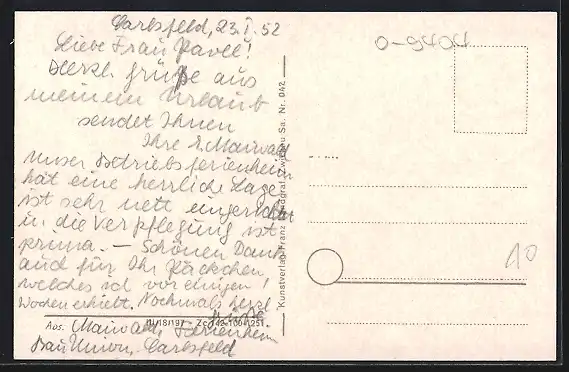 Carlsfeld, 23.I.52
Liebe Frau Pavel!
Herzl. Grüße aus
meinem Urlaub
sendet Ihnen
Ihre E. Maiwald
Unser Betriebsferienheim
hat eine herrliche Lage
ist sehr nett eingerichtet
u. die Verpflegung ist
prima. — Schönen Dank
auch für Ihr Päckchen
welches ich vor einigen
Wochen erhielt. Nochmals herzl.
Grüße
Abs. Maiwald, Ferienheim
Bau Union, Carlsfeld
III/18/197
Kunstverlag Franz Landgraf, Zwickau Sa. Nr. 042
0-9404
10